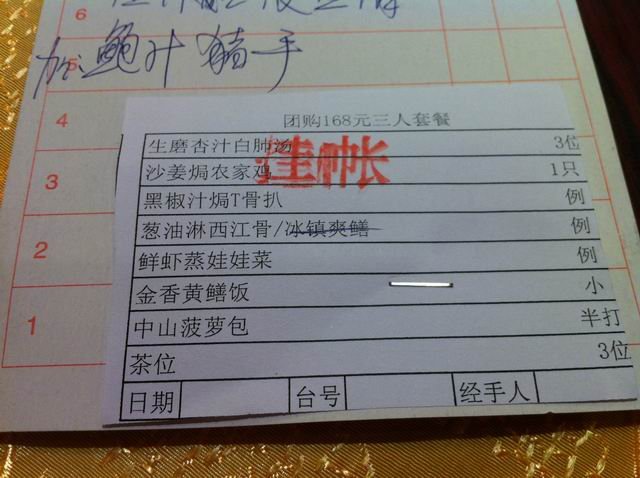 6
加鲍汁猪手
5
4
团购168元三人套餐
生磨杏汁白肺汤 3位
3
沙姜焗农家鸡 1只
黑椒汁焗T骨扒 例
葱油淋西江骨/冰镇爽鳝 例
2
鲜虾蒸娃娃菜 例
金香黄鳝饭 小
1
中山菠萝包 半打
茶位 3位
日期 台号 经手人